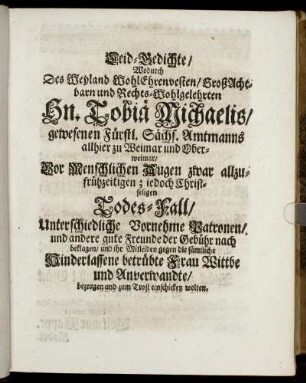 Leid-Gedichte/
Wodurch
Des Weyland WohlEhrenvesten/ GroßAcht-
barn und Rechts-Wohlgelehrten
Hn. Tobiä Michaelis/
gewesenen Fürstl. Sächs. Amtmanns
allhier zu Weimar und Ober-
weimar/
Vor Menschlichen Augen zwar allzu-
frühzeitigen; iedoch Christ-
seligen
Todes-Fall/
Unterschiedliche Vornehme Patronen/
und andere gute Freunde der Gebühr nach
beklagen/ und ihr Mitleiden gegen die sämtliche
Hinderlassene betrübte Frau Wittbe
und Anverwandte/
bezeugen und zum Trost einschicken wolten.